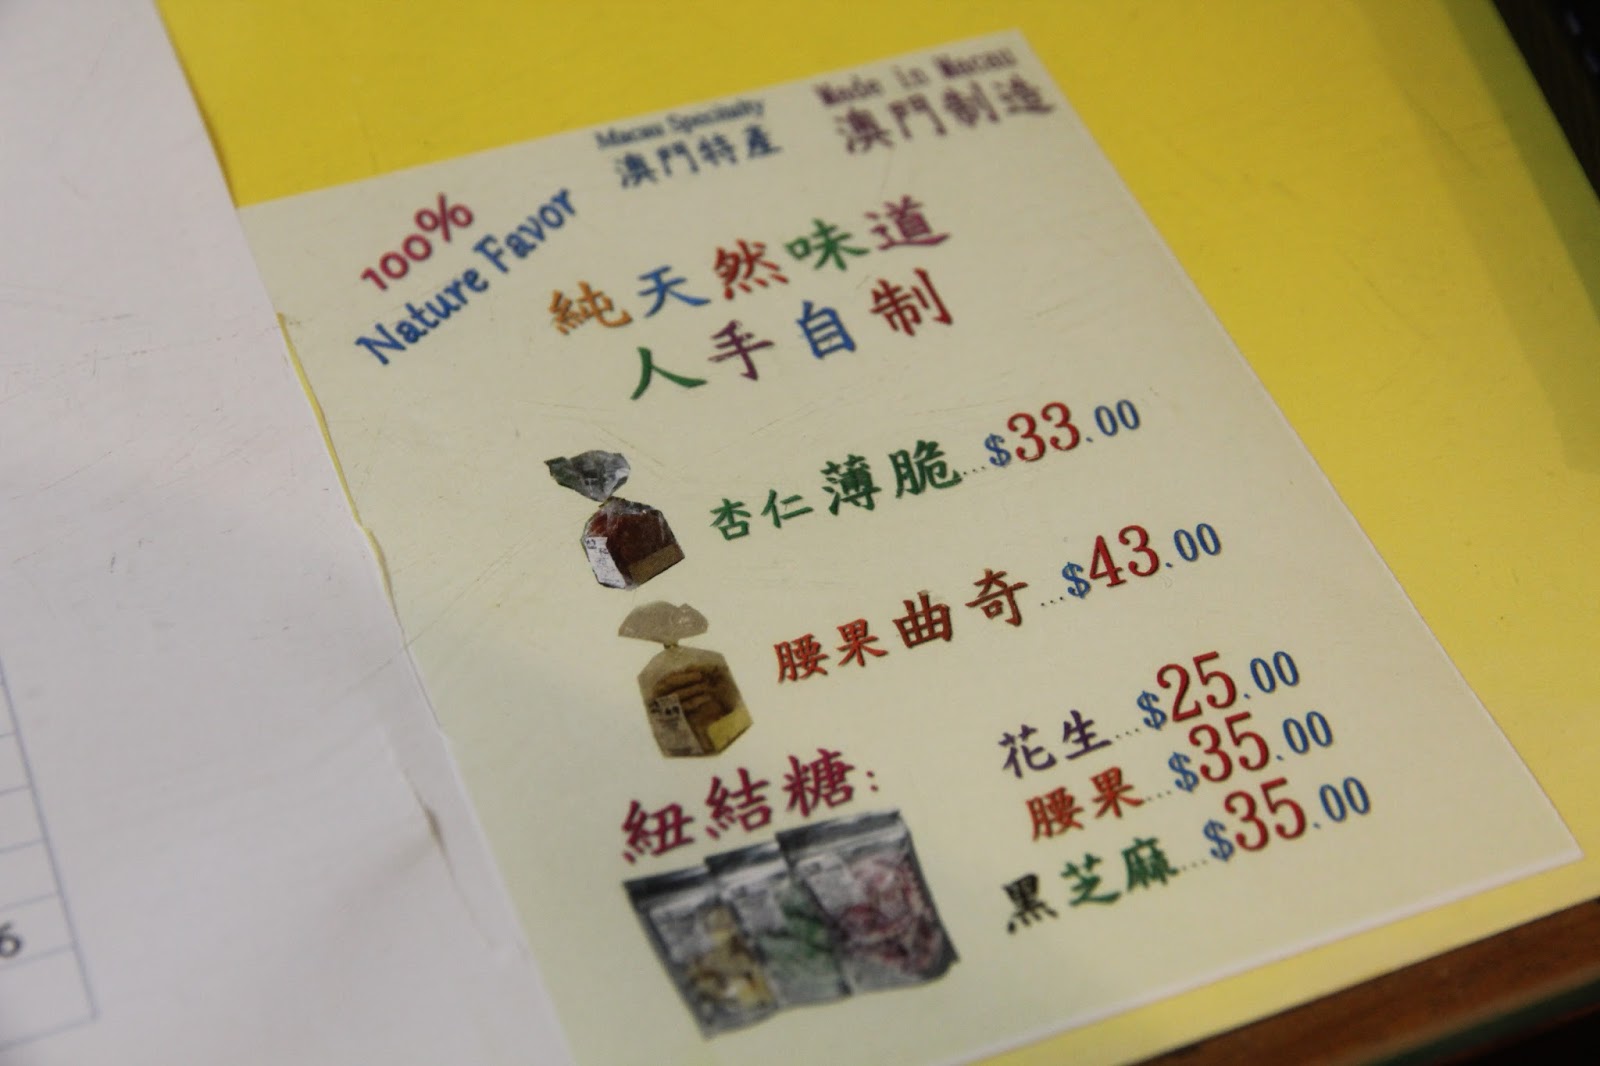 100%
Nature Favor
Macau Specialty
澳門特產
Made in Macau
澳門制造
純天然味道
人手自制
杏仁薄脆...$33.00
腰果曲奇...$43.00
紐結糖:
花生...$25.00
腰果...$35.00
黑芝麻...$35.00
6